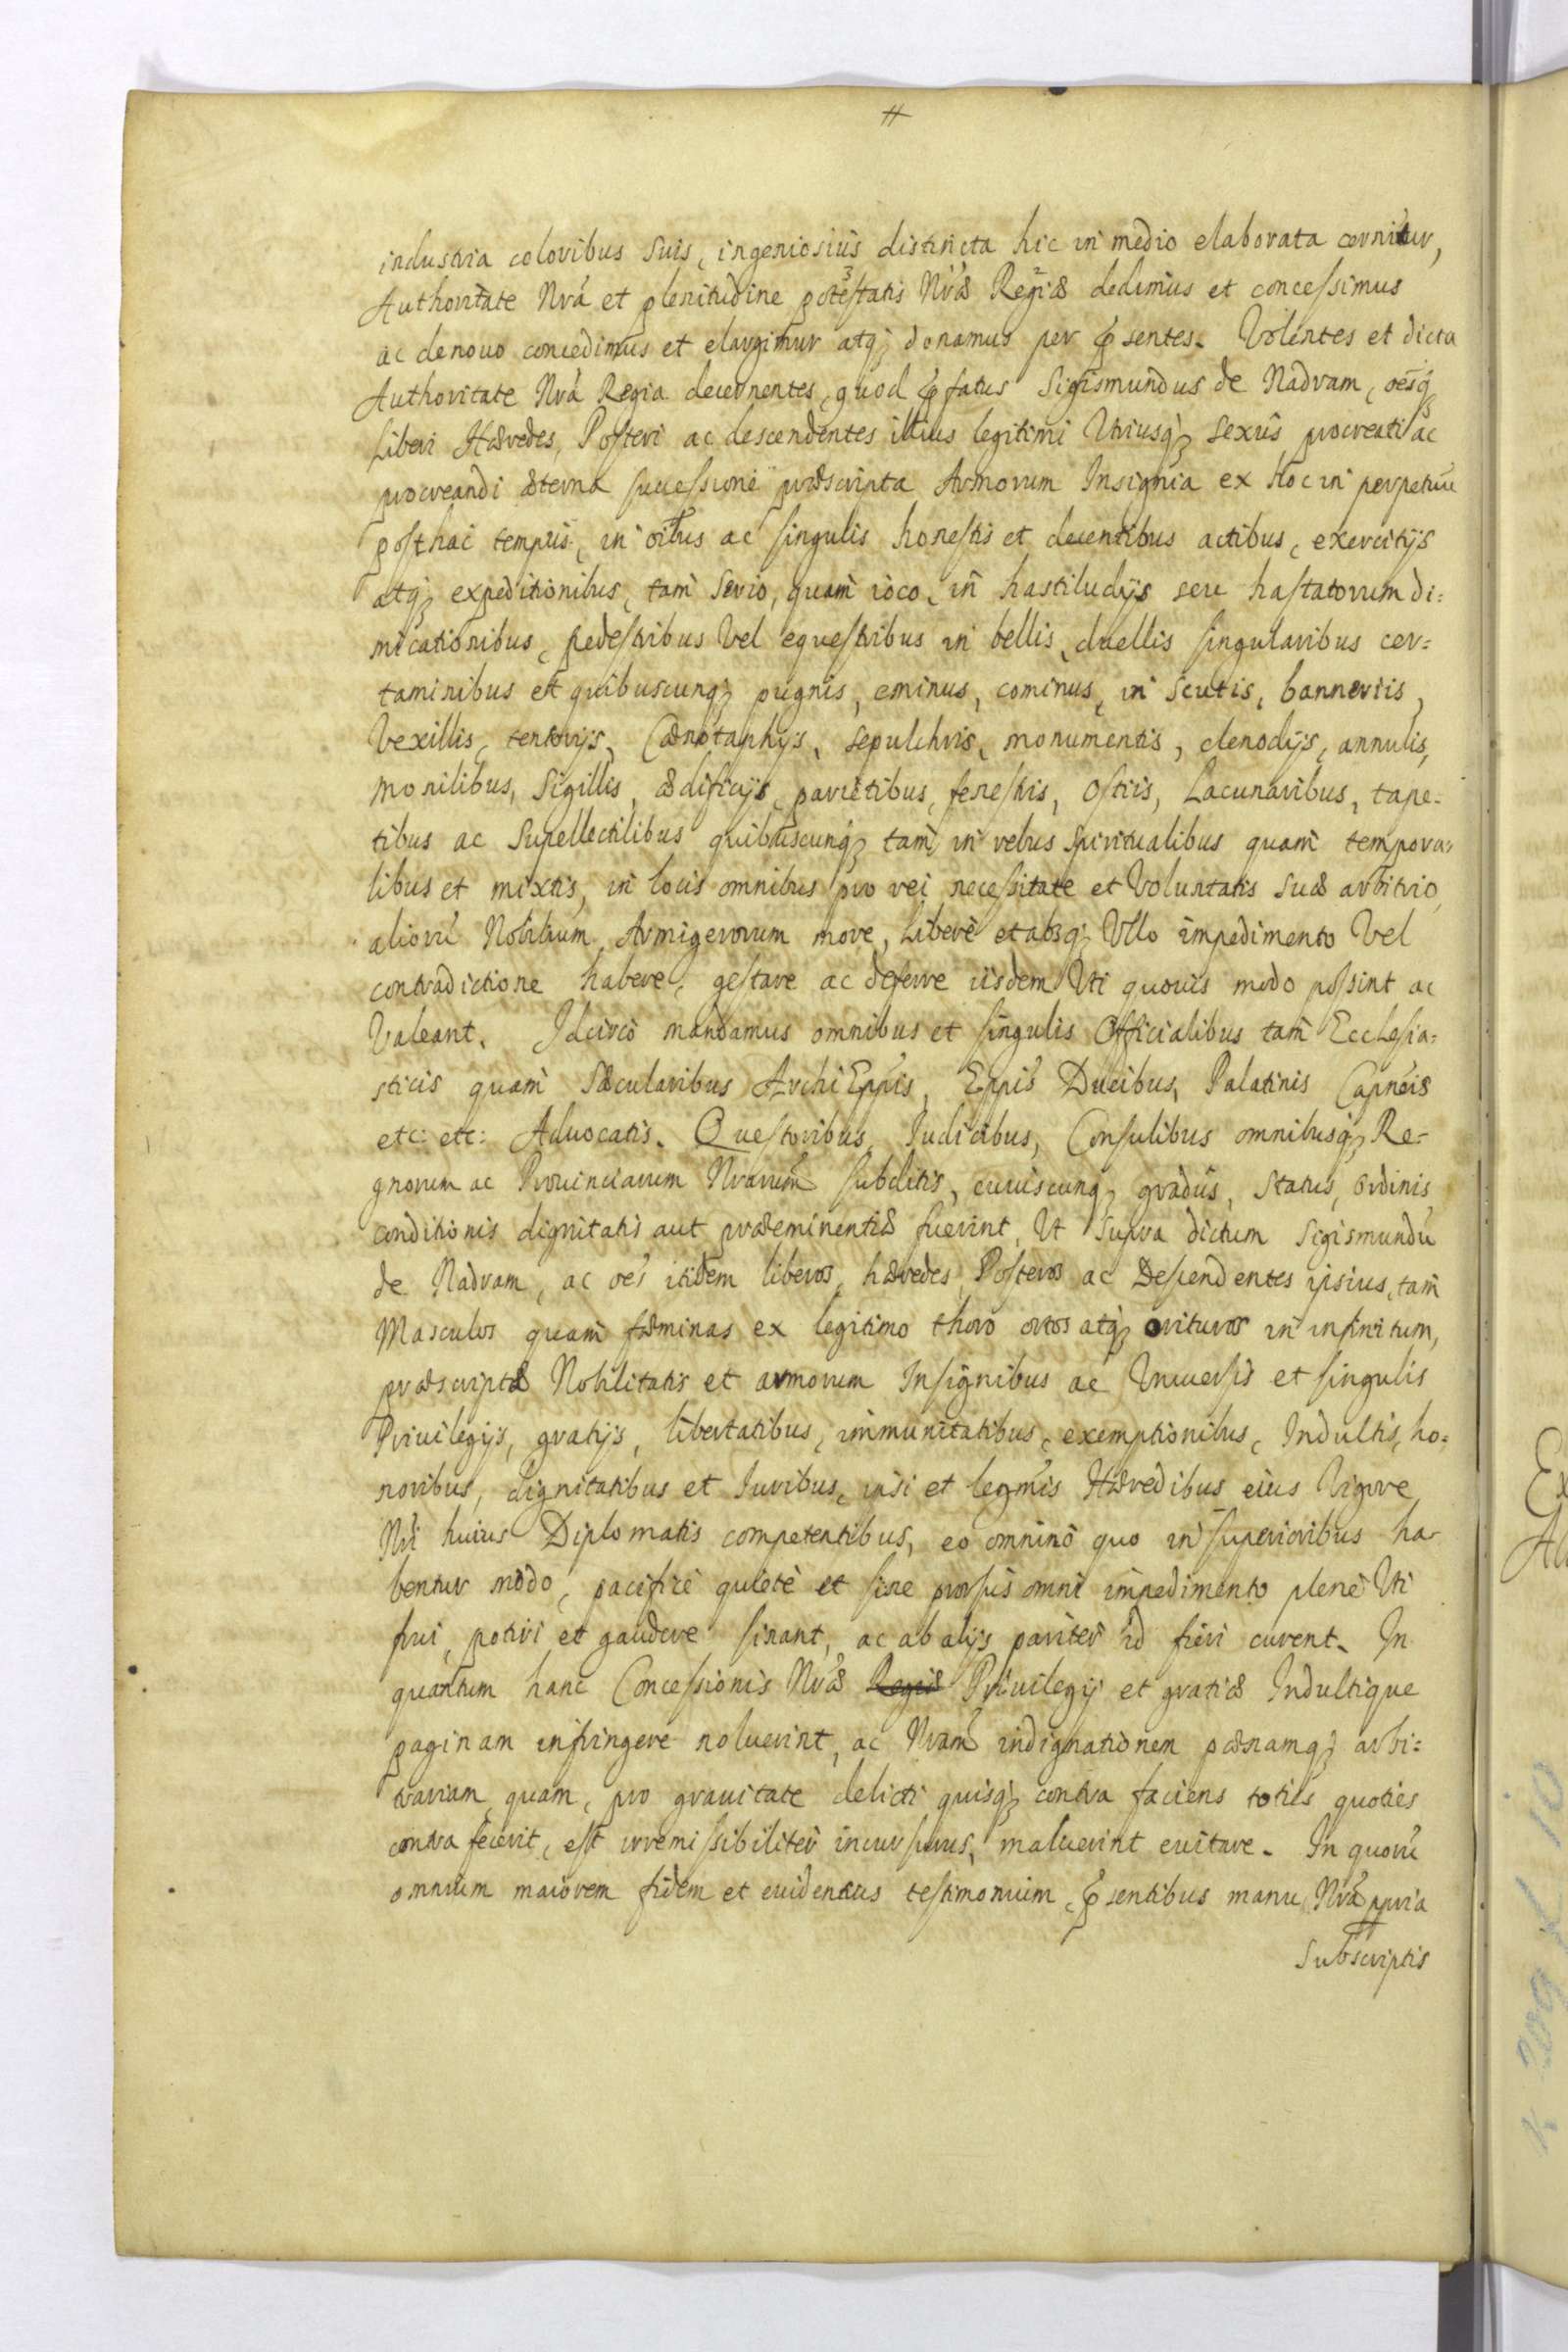 #
industria coloribus suis, ingeniosiùs distincta hic in medio elaborata cernitur,
Authoritate Nrã et plenitudine potestatis Nræ Regiæ dedimus et concessimus
ac denouo concedimus et elargimur atq; donamus per p̃sentes. Volentes et dicta
Authoritate Nrã Regia decernentes, quod p̃fatus Sigismundus de Nadram, oẽsq;
Liberi Hæredes, Posteri ac descendentes illius legitimi Utriusq; Sexûs procreati ac
procreandi æterna successione præscripta Armorum Insignia ex hoc in perpetuũ
posthac tempus, in oĩbus ac singulis honestis et decentibus actibus, exercitijs
atq; expeditionibus, tam serio, quam ioco, in hastiludijs seu hastatorum di=
micationibus, pedestribus Vel equestribus in bellis, duellis singularibus cer=
taminibus et quibuscunq; pugnis, eminus, cominus, in scutis, banneriis,
Vexillis, tentorijs, Cænotaphijs, sepulchris, monumentis, clenodijs, annulis,
Monilibus, Sigillis, ædificijs, parietibus, fenestris, Ostiis, Lacunaribus, tape=
tibus ac Supellectilibus quibuscunq; tam in rebus Spiritualibus quam tempora=
libus et mixtis, in locis omnibus pro rei necessitate et Voluntatis suæ arbitrio,
aliorũ Nobilium, Armigerorum more, Liberè et absq; Vllo impedimento Vel
contradictione habere, gestare ac deferre iisdem Vti quouis modo possint ac
Valeant. Idcircò mandamus omnibus et singulis Officialibus tam Ecclesia=
sticis quam Sæcularibus ArchiEppis, Eppis Ducibus, Palatinis Capneis
etc: etc: Aduocatis. Questoribus, Iudicibus, Consulibus omnibusq; Re=
gnorum ac Prouinciarum Nrarum subditis, cuiuscunq; gradûs, Statûs, Ordinis
conditionis dignitatis aut præeminentiæ fuerint, Vt supra dictum Sigismundũ
de Nadram, ac oẽs itidem liberos, hæredes, Posteros ac Descendentes ipsius, tam
Masculos quam fæminas ex legitimo thoro ortos atq; orituros in infinitum,
præscriptæ Nobilitatis et armorum Insignibus ac Vniuersis et singulis
Priuilegijs, gratijs, libertatibus, immunitatibus, exemptionibus, Indultis, ho=
noribus, dignitatibus et Iuribus, ipsi et legmis Hæredibus eius Vigore
Nri huius Diplomatis competentibus, eo omninò quo in superioribus ha=
bentur modo, pacificè quietè et sine prorsus omni impedimento plenè Vti
frui, potiri et gaudere sinant, ac ab alijs pariter id fieri curent. In
quantum hanc Concessionis Nræ Regiæ Priuilegij et gratiæ Indultique
paginam infringere noluerint, ac Nram indignationem pœnamq; arbi=
trariam, quam, pro grauitate delicti quisq; contra faciens toties quoties
contra fecerit, est irremissibiliter incursurus, maluerint euitare. In quorũ
omnium maiorem fidem et euidentius testimonium, p̃sentibus manu Nrã ppria
Subscriptis